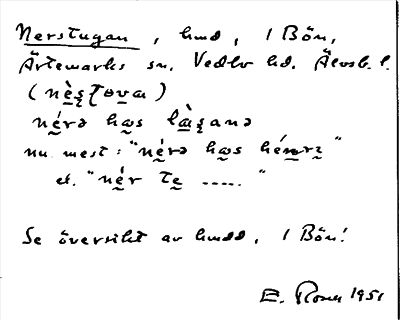 Nerstugan, hmd, 1 Bön,
Ärtemarks sn. Vedbo hd. Älvsb. l.
(nès̹tɷva)
nérə hɷs làs̹anə
nu mest: "nérə hɷs hénrɪ"
el. "nér te ....."
Se översikt av hmdd, 1 Bön!
E. Rosen 1951